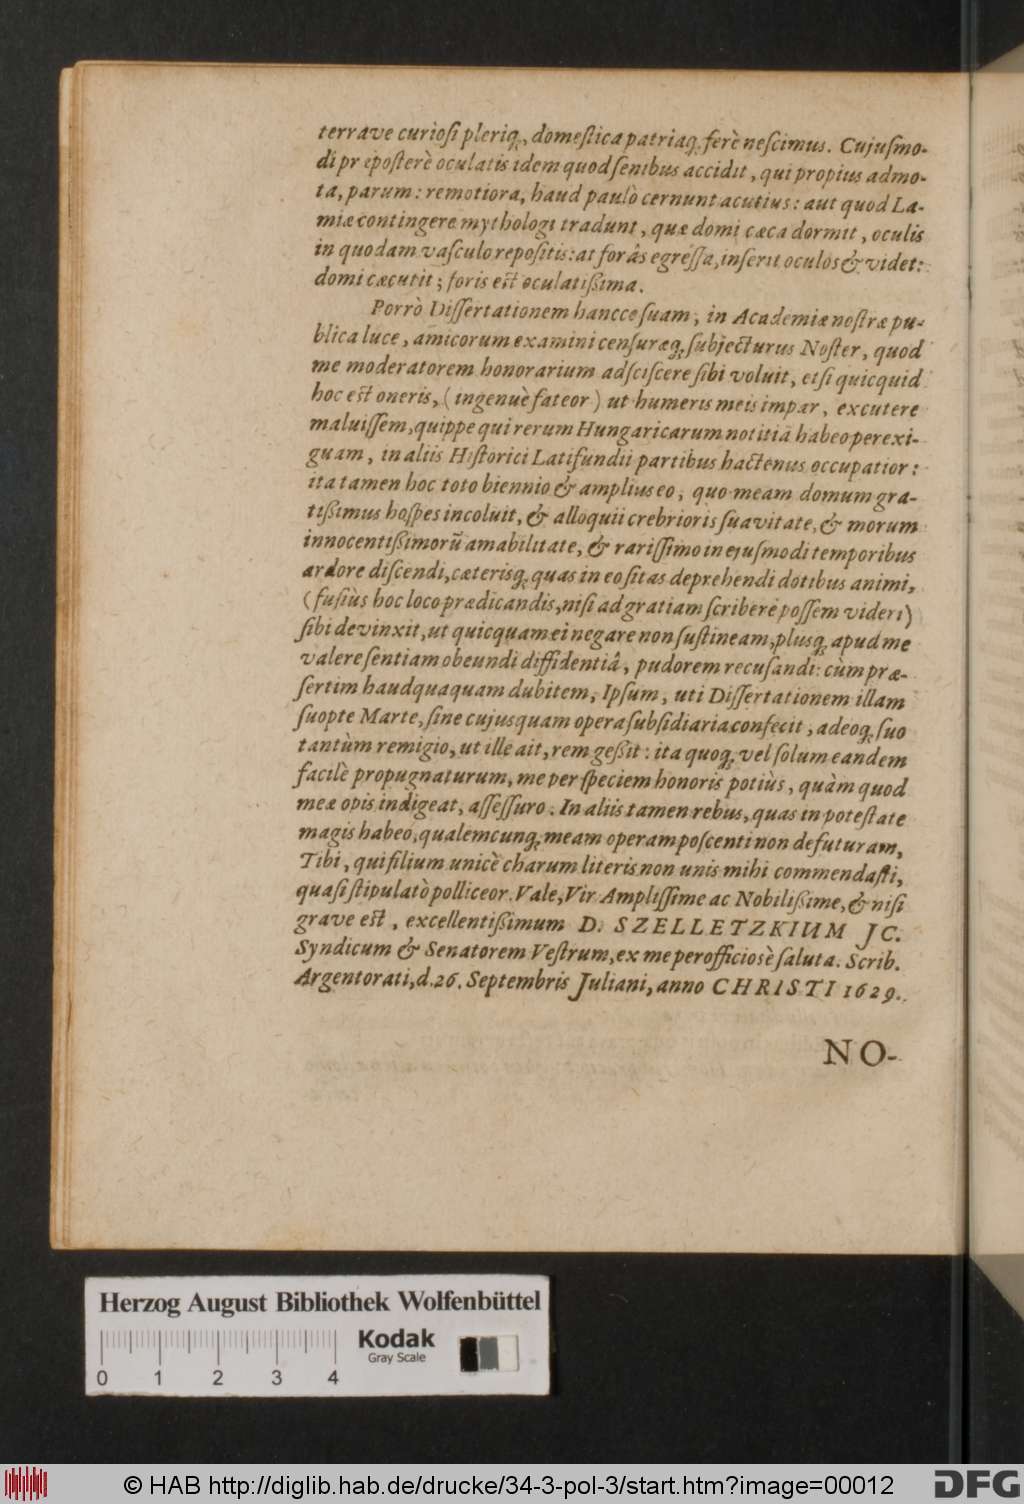 terrave curiosi pleriq́;, domestica patriaq́; ferè nescimus. Cujusmo-
di præposterè oculatis idem quod senibus accidit, qui propius admo-
ta, parum: remotiora, haud paulò cernunt acutius: aut quod La-
miæ contingere mythologi tradunt, quæ domi cæca dormit, oculis
in quodam vasculo repositis: at forâs egressa, inserit oculos & videt:
domi cæcutit; foris est oculatissima.
Porrò Dissertationem hancce suam, in Academiæ nostræ pu-
blica luce, amicorum examini censuræq́; subjecturus Noster, quod
me moderatorem honorarium adsciscere sibi voluit, etsi quicquid
hoc est oneris, (ingenuè fateor) ut humeris meis impar, excutere
maluissem, quippe qui rerum Hungaricarum notitiã habeo perexi-
guam, in aliis Historici Latifundii partibus hactenus occupatior:
ita tamen hoc toto biennio & amplius eo, quo meam domum gra-
tissimus hospes incoluit, & alloquii crebrioris suavitate, & morum
innocentissimorũ amabilitate, & rarissimo in ejusmodi temporibus
ardore discendi, cæterisq́; quas in eo sitas deprehendi dotibus animi,
(fusiùs hoc loco prædicandis, nisi ad gratiam scribere possem videri)
sibi devinxit, ut quicquam ei negare non sustineam, plusq́; apud me
valere sentiam obeundi diffidentiâ, pudorem recusandi: cùm præ-
sertim haudquaquam dubitem, Ipsum, uti Dissertationem illam
suopte Marte, sine cujusquam opera subsidiaria confecit, adeoq́; suo
tantùm remigio, ut ille ait, rem gessit: ita quoq́; vel solum eandem
facilè propugnaturum, me per speciem honoris potiùs, quàm quod
meæ opis indigeat, assessuro. In aliis tamen rebus, quas in potestate
magis habeo, qualemcunq́; meam operam poscenti non defuturam,
Tibi, qui filium unicè charum literis non unis mihi commendasti,
quasi stipulatò polliceor. Vale, Vir Amplissime ac Nobilissime, & nisi
grave est, excellentissimum D. SZELLETZKIUM JC.
Syndicum & Senatorem Vestrum, ex me perofficiosè saluta. Scrib.
Argentorati, d. 26. Septembris Juliani, anno CHRISTI 1629.
NO-
Herzog August Bibliothek Wolfenbüttel
Kodak
Gray Scale
0 1 2 3 4
© HAB http://diglib.hab.de/drucke/34-3-pol-3/start.htm?image=00012
DFG